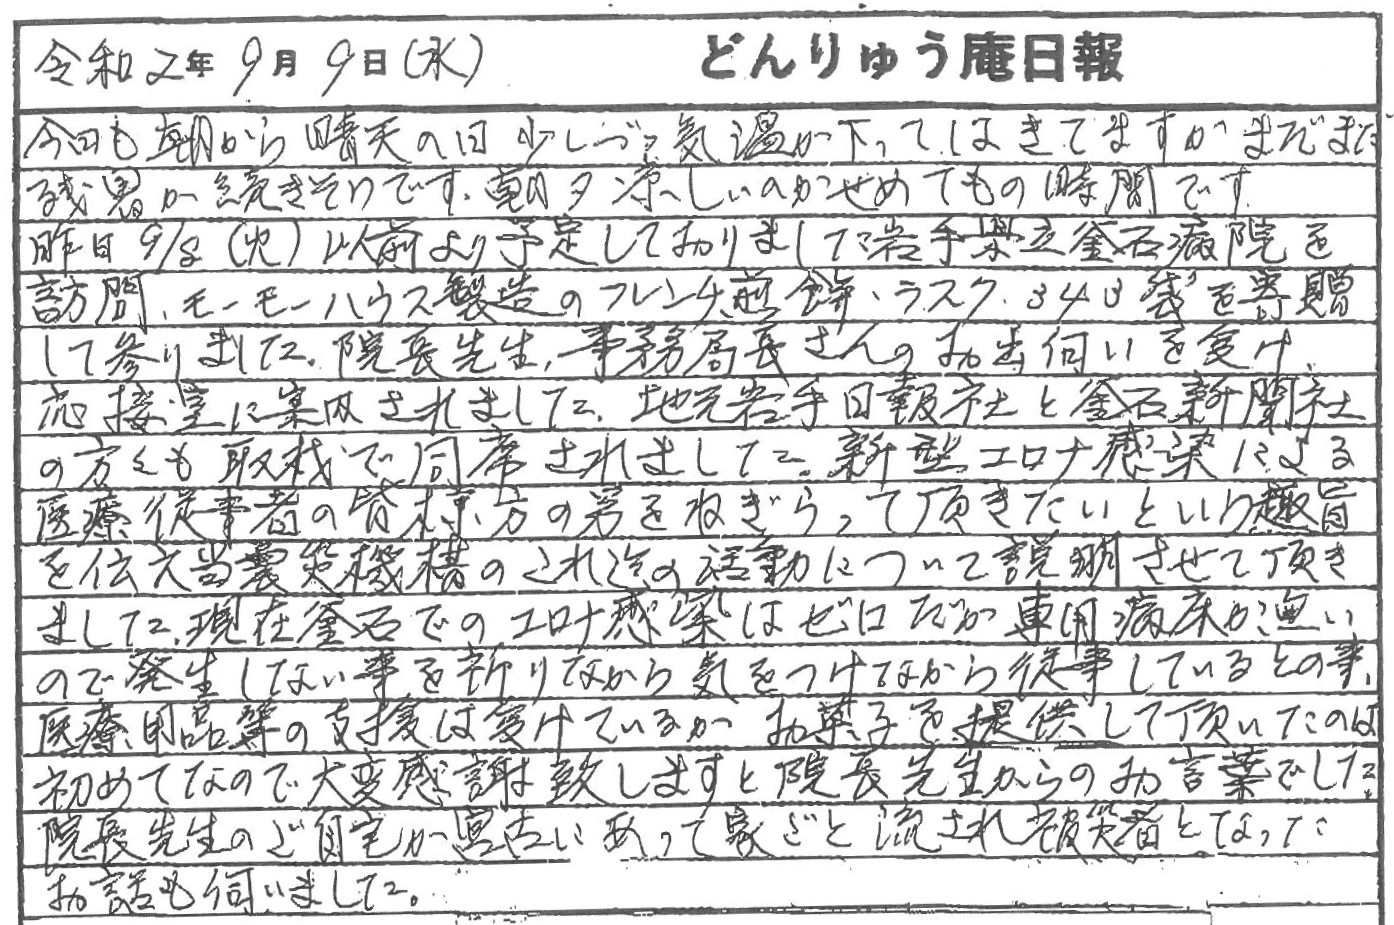 令和2年 9月 9日(水) どんりゅう庵日報
今日も朝から晴天の日 少しづつ気温が下ってはきてますがまだまだ
残暑が続きそうです。朝夕涼しいのがせめてもの時間です
昨日9/8(火)以前より予定しておりました岩手県立釜石病院を
訪問、モーモーハウス製造のフレンチ煎餅、ラスク、343袋を寄贈
して参りました。院長先生、事務局長さんのお出伺いを受け、
応接室に案内されました。地元岩手日報社と釜石新聞社
の方々も取材で同席されました。新型コロナ感染による
医療従事者の皆様方の労をねぎらって頂きたいという趣旨
を伝え当震災機構のこれ迄の活動について説明させて頂き
ました。現在釜石でのコロナ感染はゼロだが専用病床が無い
ので発生しない事を祈りながら気をつけながら従事しているとの事、
医療用品等の支援は受けているが お菓子を提供して頂いたのは
初めてなので大変感謝致しますと院長先生からのお言葉でした。
院長先生のご自宅が宮古にあって家ごと流され被災者となった
お話も伺いました。